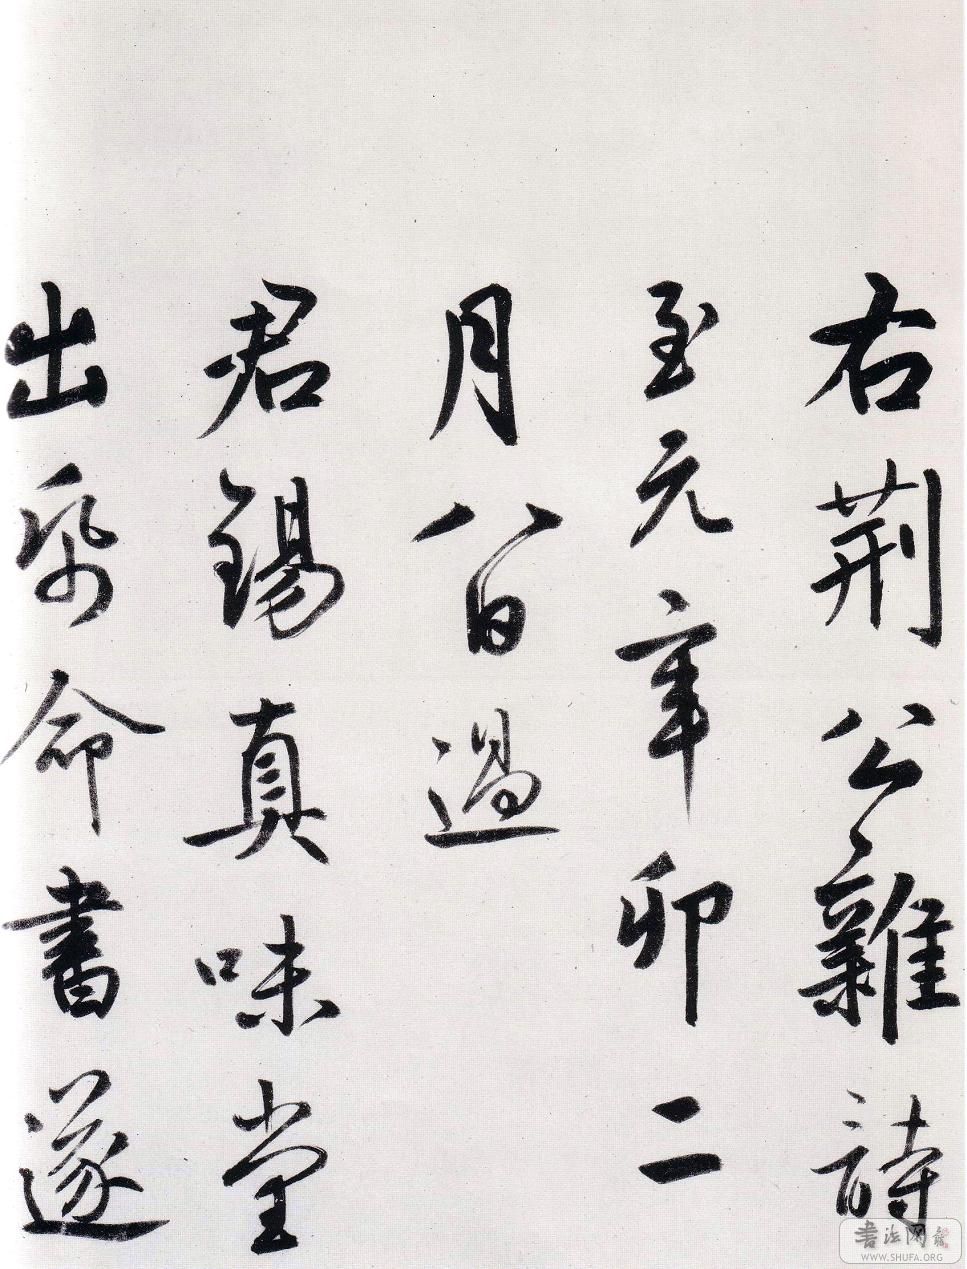 右荆公雜詩
至元辛卯二
月八日過
君錫真味堂
出紙命書遂
書法网
WWW.SHUFA.ORG